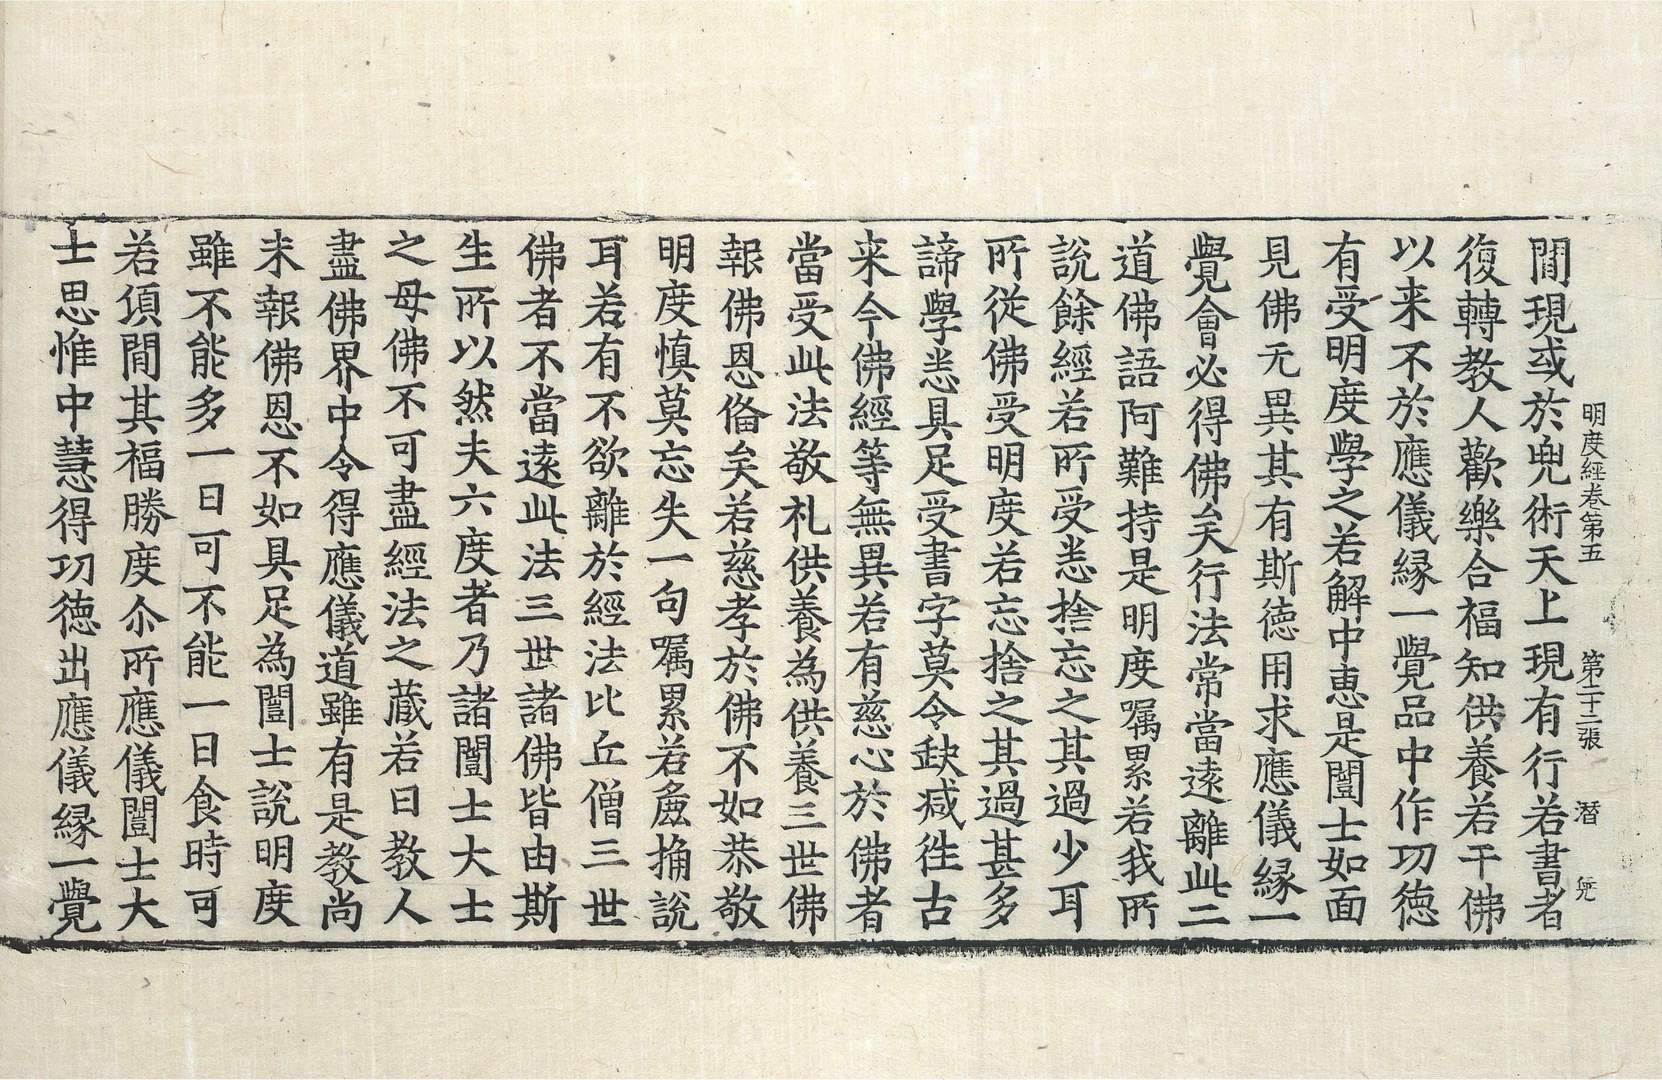 明度經卷第五　第二十二張　潜
間現或於兜術天上現有行若書者
復轉教人歡樂合福知供養若干佛
以来不於應儀縁一覺品中作㓛徳
有受明度學之若解中恵是闓士如面
見佛无異其有斯徳用求應儀縁一
覺會必得佛矣行法常當遠離此二
道佛語阿難持是明度嘱累若我所
說餘經若所受悉捨忘之其過少耳
所從佛受明度若忘捨之其過甚多
諦學悉具足受書字莫令缺减徃古
来今佛經等無異若有慈心於佛者
當受此法敬礼供養為供養三世佛
報佛恩俻矣若慈孝於佛不如恭敬
明度慎莫忘失一句嘱累若麁捔說
耳若有不欲離於經法比丘僧三世
佛者不當遠此法三世諸佛皆由斯
生所以然夫六度者乃諸闓士大士
之母佛不可盡經法之蔵若曰教人
盡佛界中令得應儀道雖有是教尚
未報佛恩不如具足為闓士說明度
雖不能多一日可不能一日食時可
若湏間其福勝度尒所應儀闓士大
士思惟中慧得㓛徳出應儀縁一覺